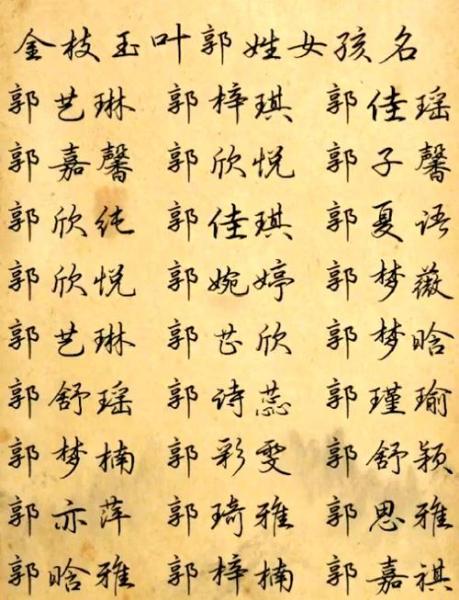 金枝玉叶郭姓女孩名
郭艺琳 郭梓琪 郭佳瑶
郭嘉馨 郭欣悦 郭子馨
郭欣纯 郭佳琪 郭夏语
郭欣悦 郭婉婷 郭梦薇
郭艺琳 郭芷欣 郭梦晗
郭舒瑶 郭诗蕊 郭瑾瑜
郭梦楠 郭彩雯 郭舒颖
郭亦萍 郭琦雅 郭思雅
郭晗雅 郭梓楠 郭嘉祺